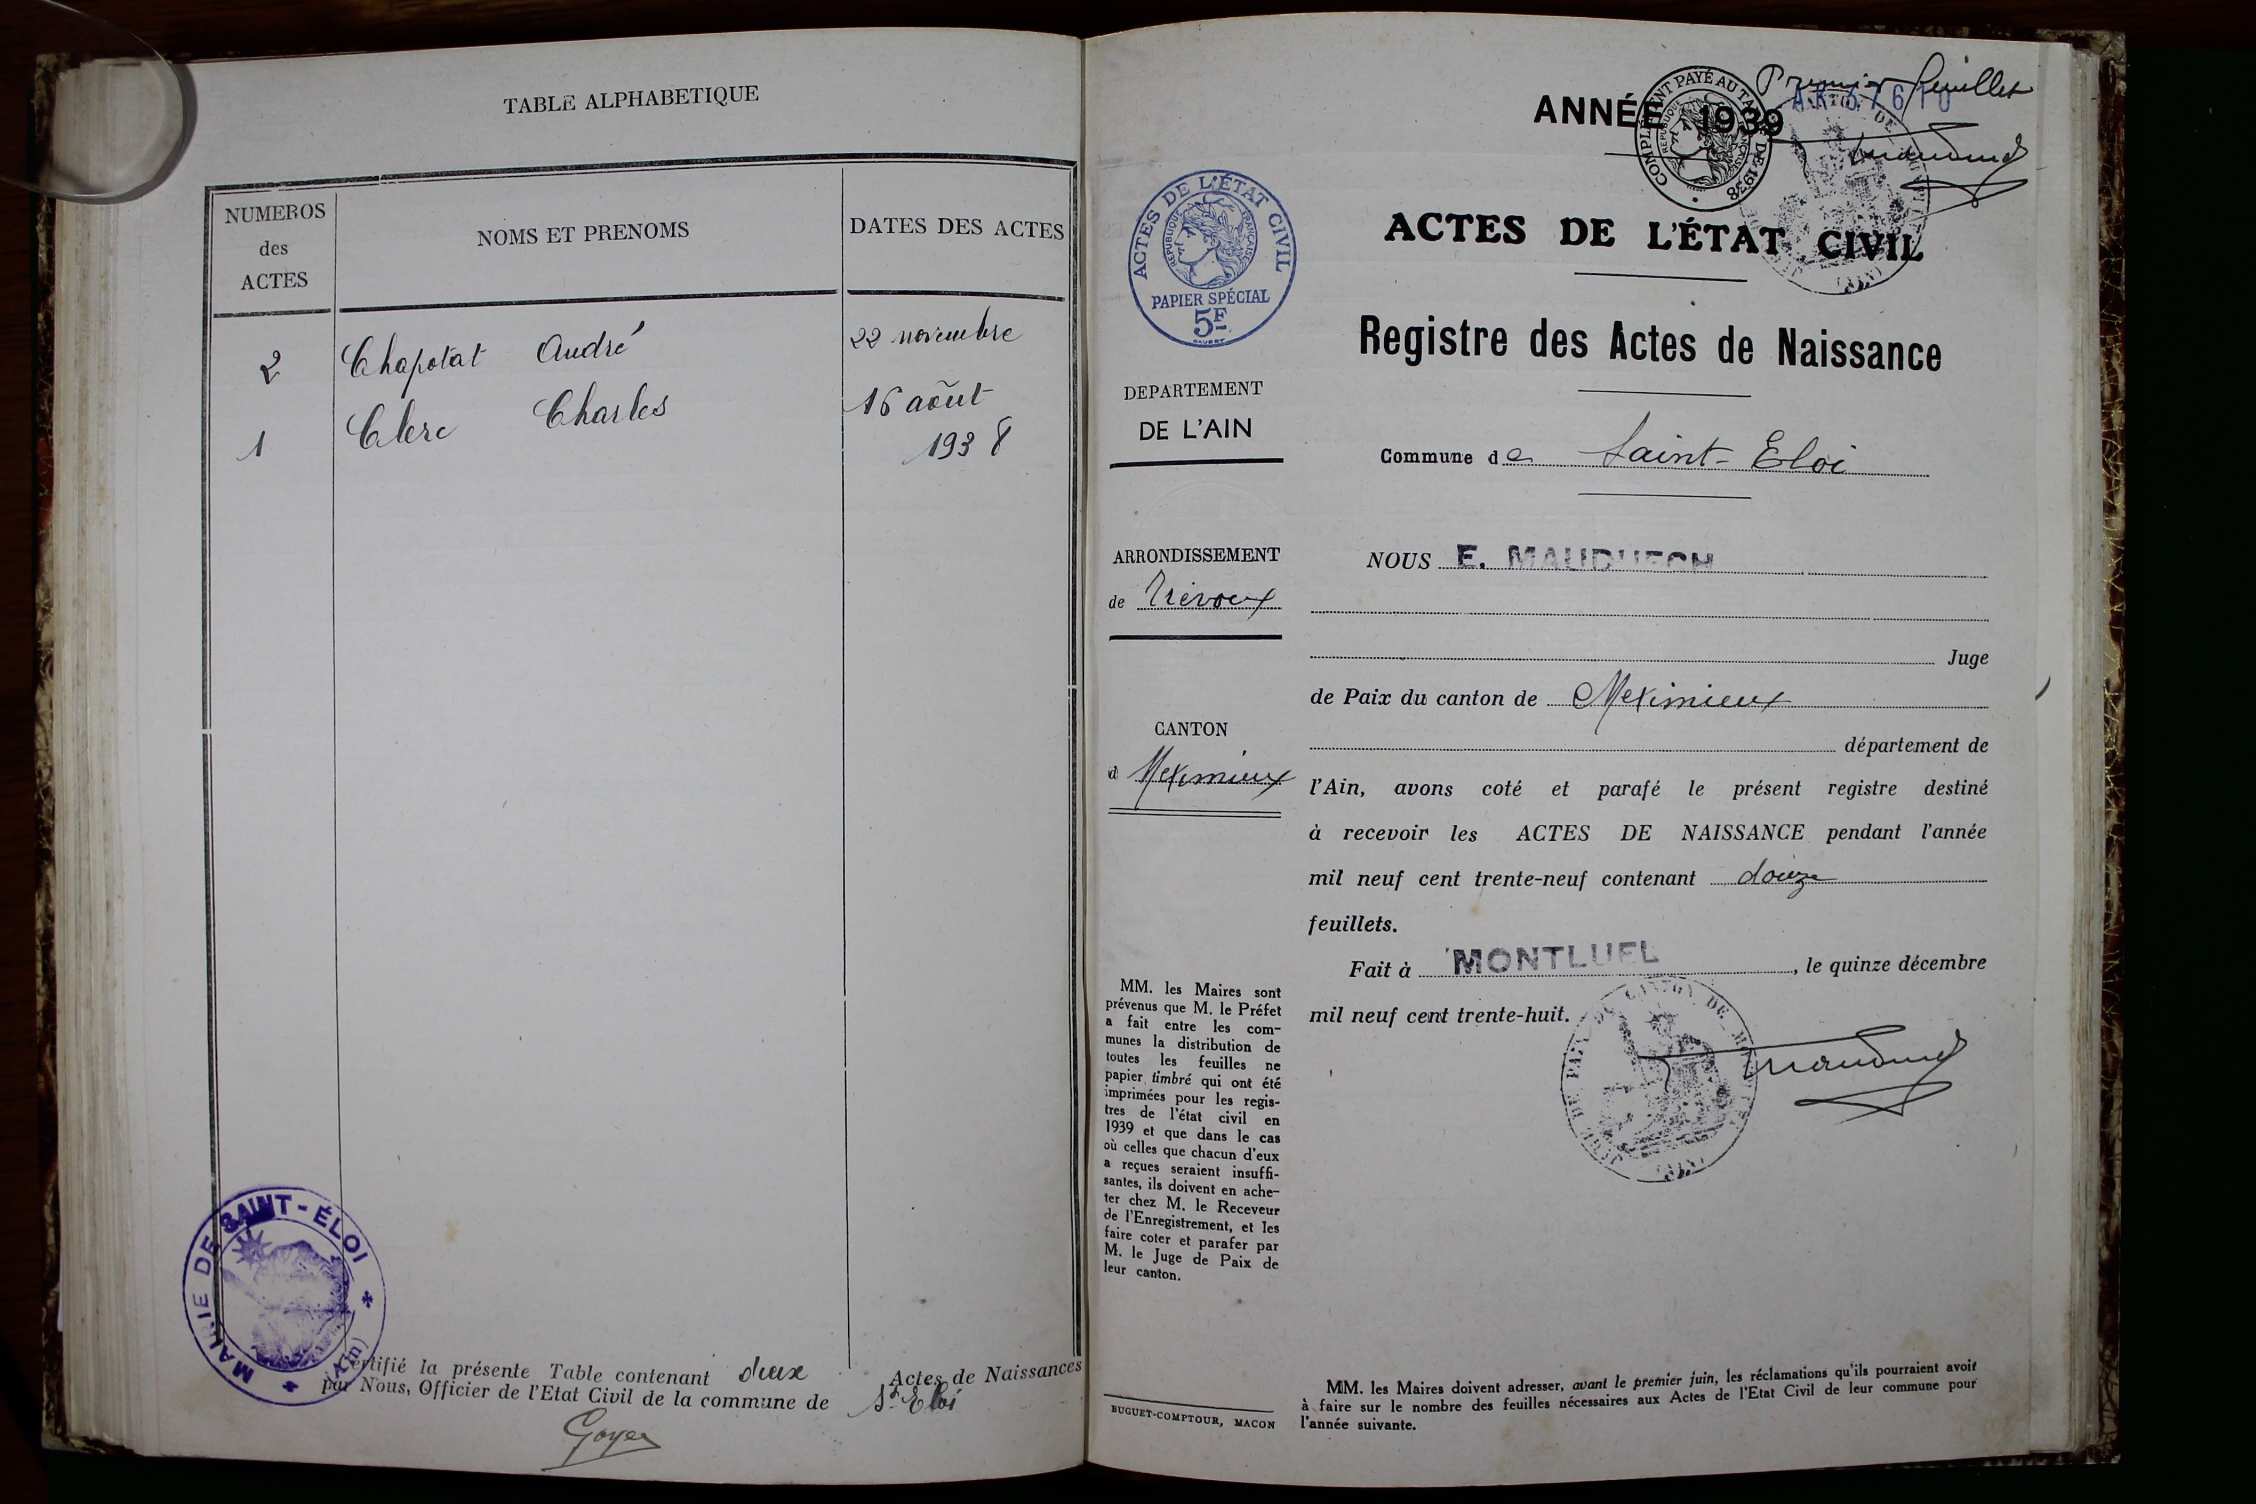 TABLE ALPHABETIQUE
NUMEROS
des
ACTES
NOMS ET PRENOMS
DATES DES ACTES
2 Chapotat André 22 novembre
1 Clerc Charles 16 août
1938
MAIRIE DE SAINT-ÉLOI
(Ain)
Certifié la présente Table contenant deux Actes de Naissances
par Nous, Officier de l'Etat Civil de la commune de St Eloi
Goyer
Premier feuillet
ANNÉE 1939
COMPLÉMENT PAYÉ AU TARIF DE 1938
ACTES DE L'ÉTAT CIVIL
RÉPUBLIQUE FRANÇAISE
PAPIER SPÉCIAL
5F
ACTES DE L'ÉTAT CIVIL
Registre des Actes de Naissance
DEPARTEMENT
DE L'AIN
Commune de Saint-Eloi
ARRONDISSEMENT
de Trévoux
CANTON
d Meximieux
NOUS E. MAUDUECH
Juge
de Paix du canton de Meximieux
département de
l'Ain, avons coté et parafé le présent registre destiné
à recevoir les ACTES DE NAISSANCE pendant l'année
mil neuf cent trente-neuf contenant douze
feuillets.
Fait à MONTLUEL, le quinze décembre
mil neuf cent trente-huit.
JUGE DE PAIX DU CANTON DE
(AIN)
MM. les Maires sont
prévenus que M. le Préfet
a fait entre les com-
munes la distribution de
toutes les feuilles ne
papier timbré qui ont été
imprimées pour les regis-
tres de l'état civil en
1939 et que dans le cas
où celles que chacun d'eux
a reçues seraient insuffi-
santes, ils doivent en ache-
ter chez M. le Receveur
de l'Enregistrement, et les
faire coter et parafer par
M. le Juge de Paix de
leur canton.
BUGUET-COMPTOUR, MACON
MM. les Maires doivent adresser, avant le premier juin, les réclamations qu'ils pourraient avoir
à faire sur le nombre des feuilles nécessaires aux Actes de l'Etat Civil de leur commune pour
l'année suivante.